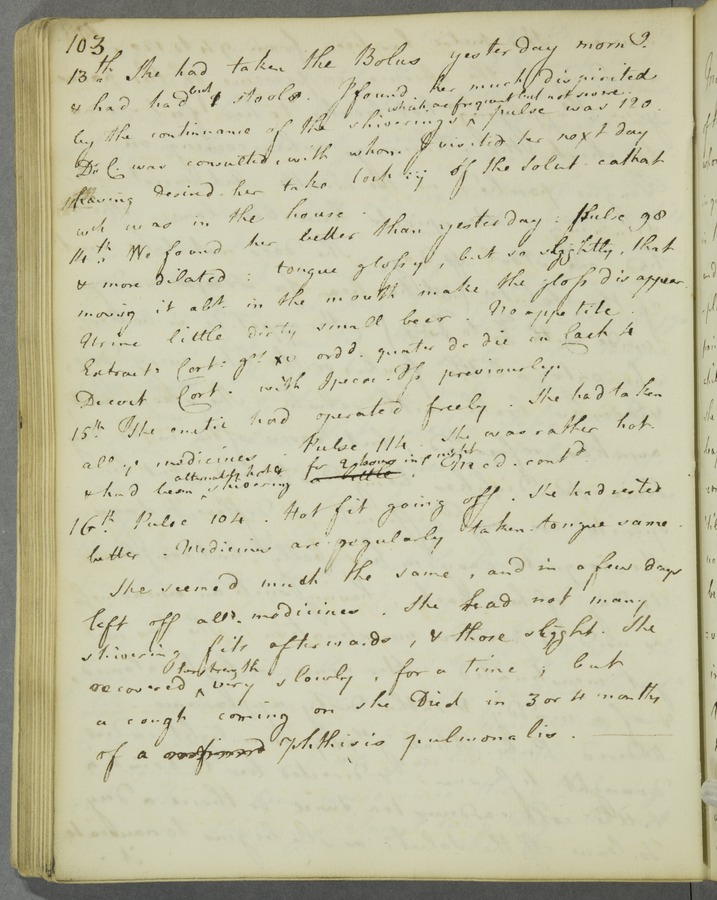 103
13th. She had taken the Bolus yesterday morng.
& had had but 1 stools. I found her much dispirited
by the continuance of the shiverings which are frequent but not severe. pulse was 120.
Dr C. was consulted, with whom I visited her next day
having desired her take Coch: iij of the Solut cathat
wch was in the house.
14th. We found her better than yesterday: Pulse 98
& more dilated: tongue glossy, but so slightly, that
moving it abt. in the mouth make the gloss disappear.
Urine little dirty small beer. No appetite.
Extract: Cort: gr xv ordd. quater de die in Coch 4
Decoct Cort. with Ipecac. ʒſs previously.
15th The emetic had operated freely. She had taken
all ye medicines. Pulse 114. She was rather hot
& had been alternately hot & shivering for 2 hours in ye night. Med. contd
16th. Pulse 104. Hot fit going off. She had rested
better. Medicines are regularly taken. tongue same.
She seemed much the same, and in a few days
left off all medicines. She had not many
shivering fits afterwards, & those slight. She
recovered her strength very slowly, for a time; but
a cough coming on she Died in 3 or 4 months
of a Phthisis pulmonalis.